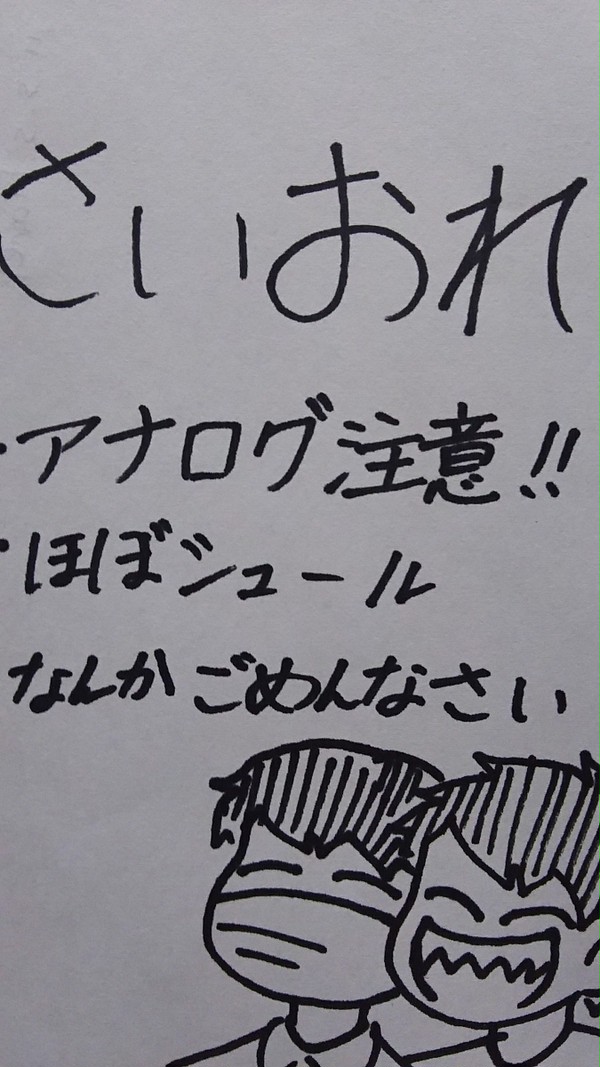 さいおれ
・アナログ注意!!
・ほぼシュール
なんかごめんなさい